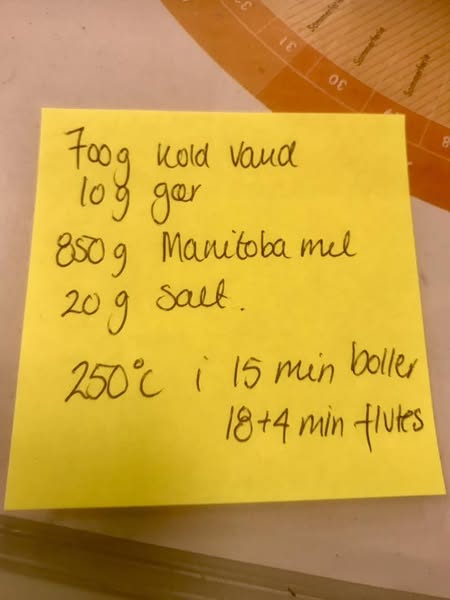 700g kold vand
10g gær
850g Manitoba mel
20g salt.
250°C i 15 min boller
18+4 min flutes
Sommerferie
Sommerferie
Sommerferie
31
30